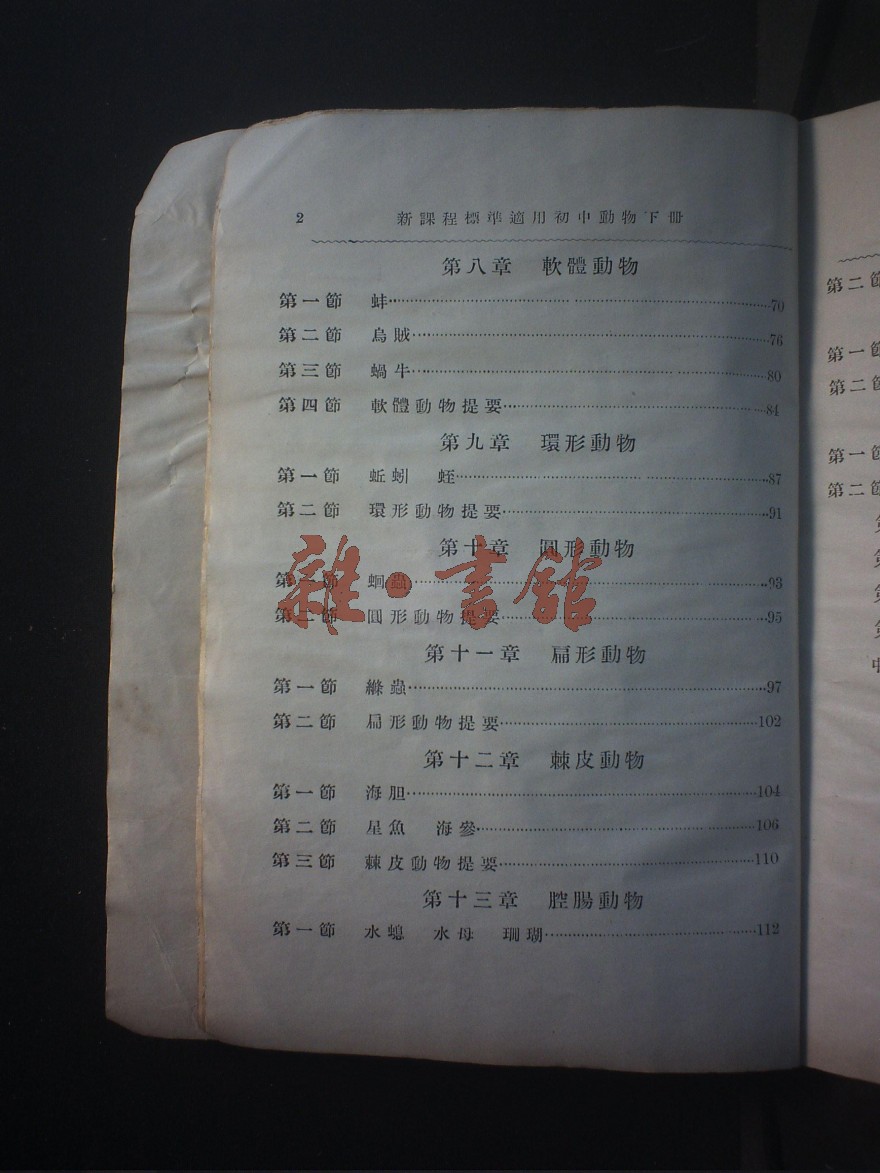 2 新課程標準適用初中動物下冊
第八章 軟體動物
第一節 蚌……70
第二節 烏賊……76
第三節 蝸牛……80
第四節 軟體動物提要……84
第九章 環形動物
第一節 蚯蚓 蛭……87
第二節 環形動物提要……91
第十章 圓形動物
第一節 蛔蟲……93
第二節 圓形動物提要……95
雜·書舘
第十一章 扁形動物
第一節 絛蟲……97
第二節 扁形動物提要……102
第十二章 棘皮動物
第一節 海胆……104
第二節 星魚 海參……106
第三節 棘皮動物提要……110
第十三章 腔腸動物
第一節 水螅 水母 珊瑚……112
第二節
第一節
第二節
第一節
第二節